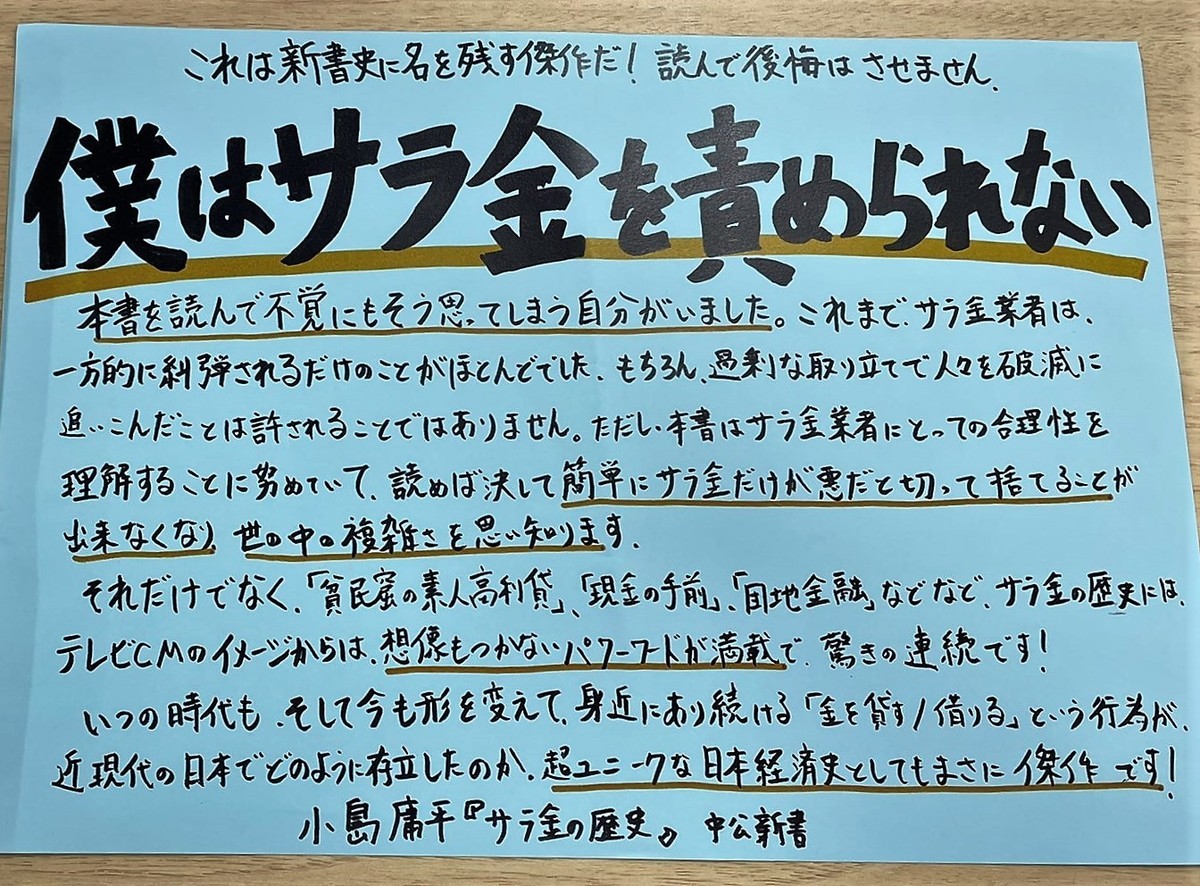 これは新書史に名を残す傑作だ！読んで後悔はさせません.
僕はサラ金を責められない
本書を読んで不覚にもそう思ってしまう自分がいました。これまで、サラ金業者は、
一方的に糾弾されるだけのことがほとんどでした、もちろん、過剰な取り立てで人々を破滅に
追いこんだことは許されることではありません。ただし本書はサラ金業者にとっての合理性を
理解することに努めていて、読めば決して簡単にサラ金だけが悪だと切って捨てることが
出来なくなり 世の中の複雑さを思い知ります.
それだけでなく、「貧民窟の素人高利貸」、「現金の手前」、「団地金融」などなど、サラ金の歴史には、
テレビCMのイメージからは、想像もつかないパワーワードが満載で、驚きの連続です！
いつの時代も、そして今も形を変えて、身近にあり続ける「金を貸す/借りる」という行為が、
近現代の日本でどのように存立したのか、超ユニークな日本経済史としてもまさに傑作です！
小島庸平『サラ金の歴史』 中公新書